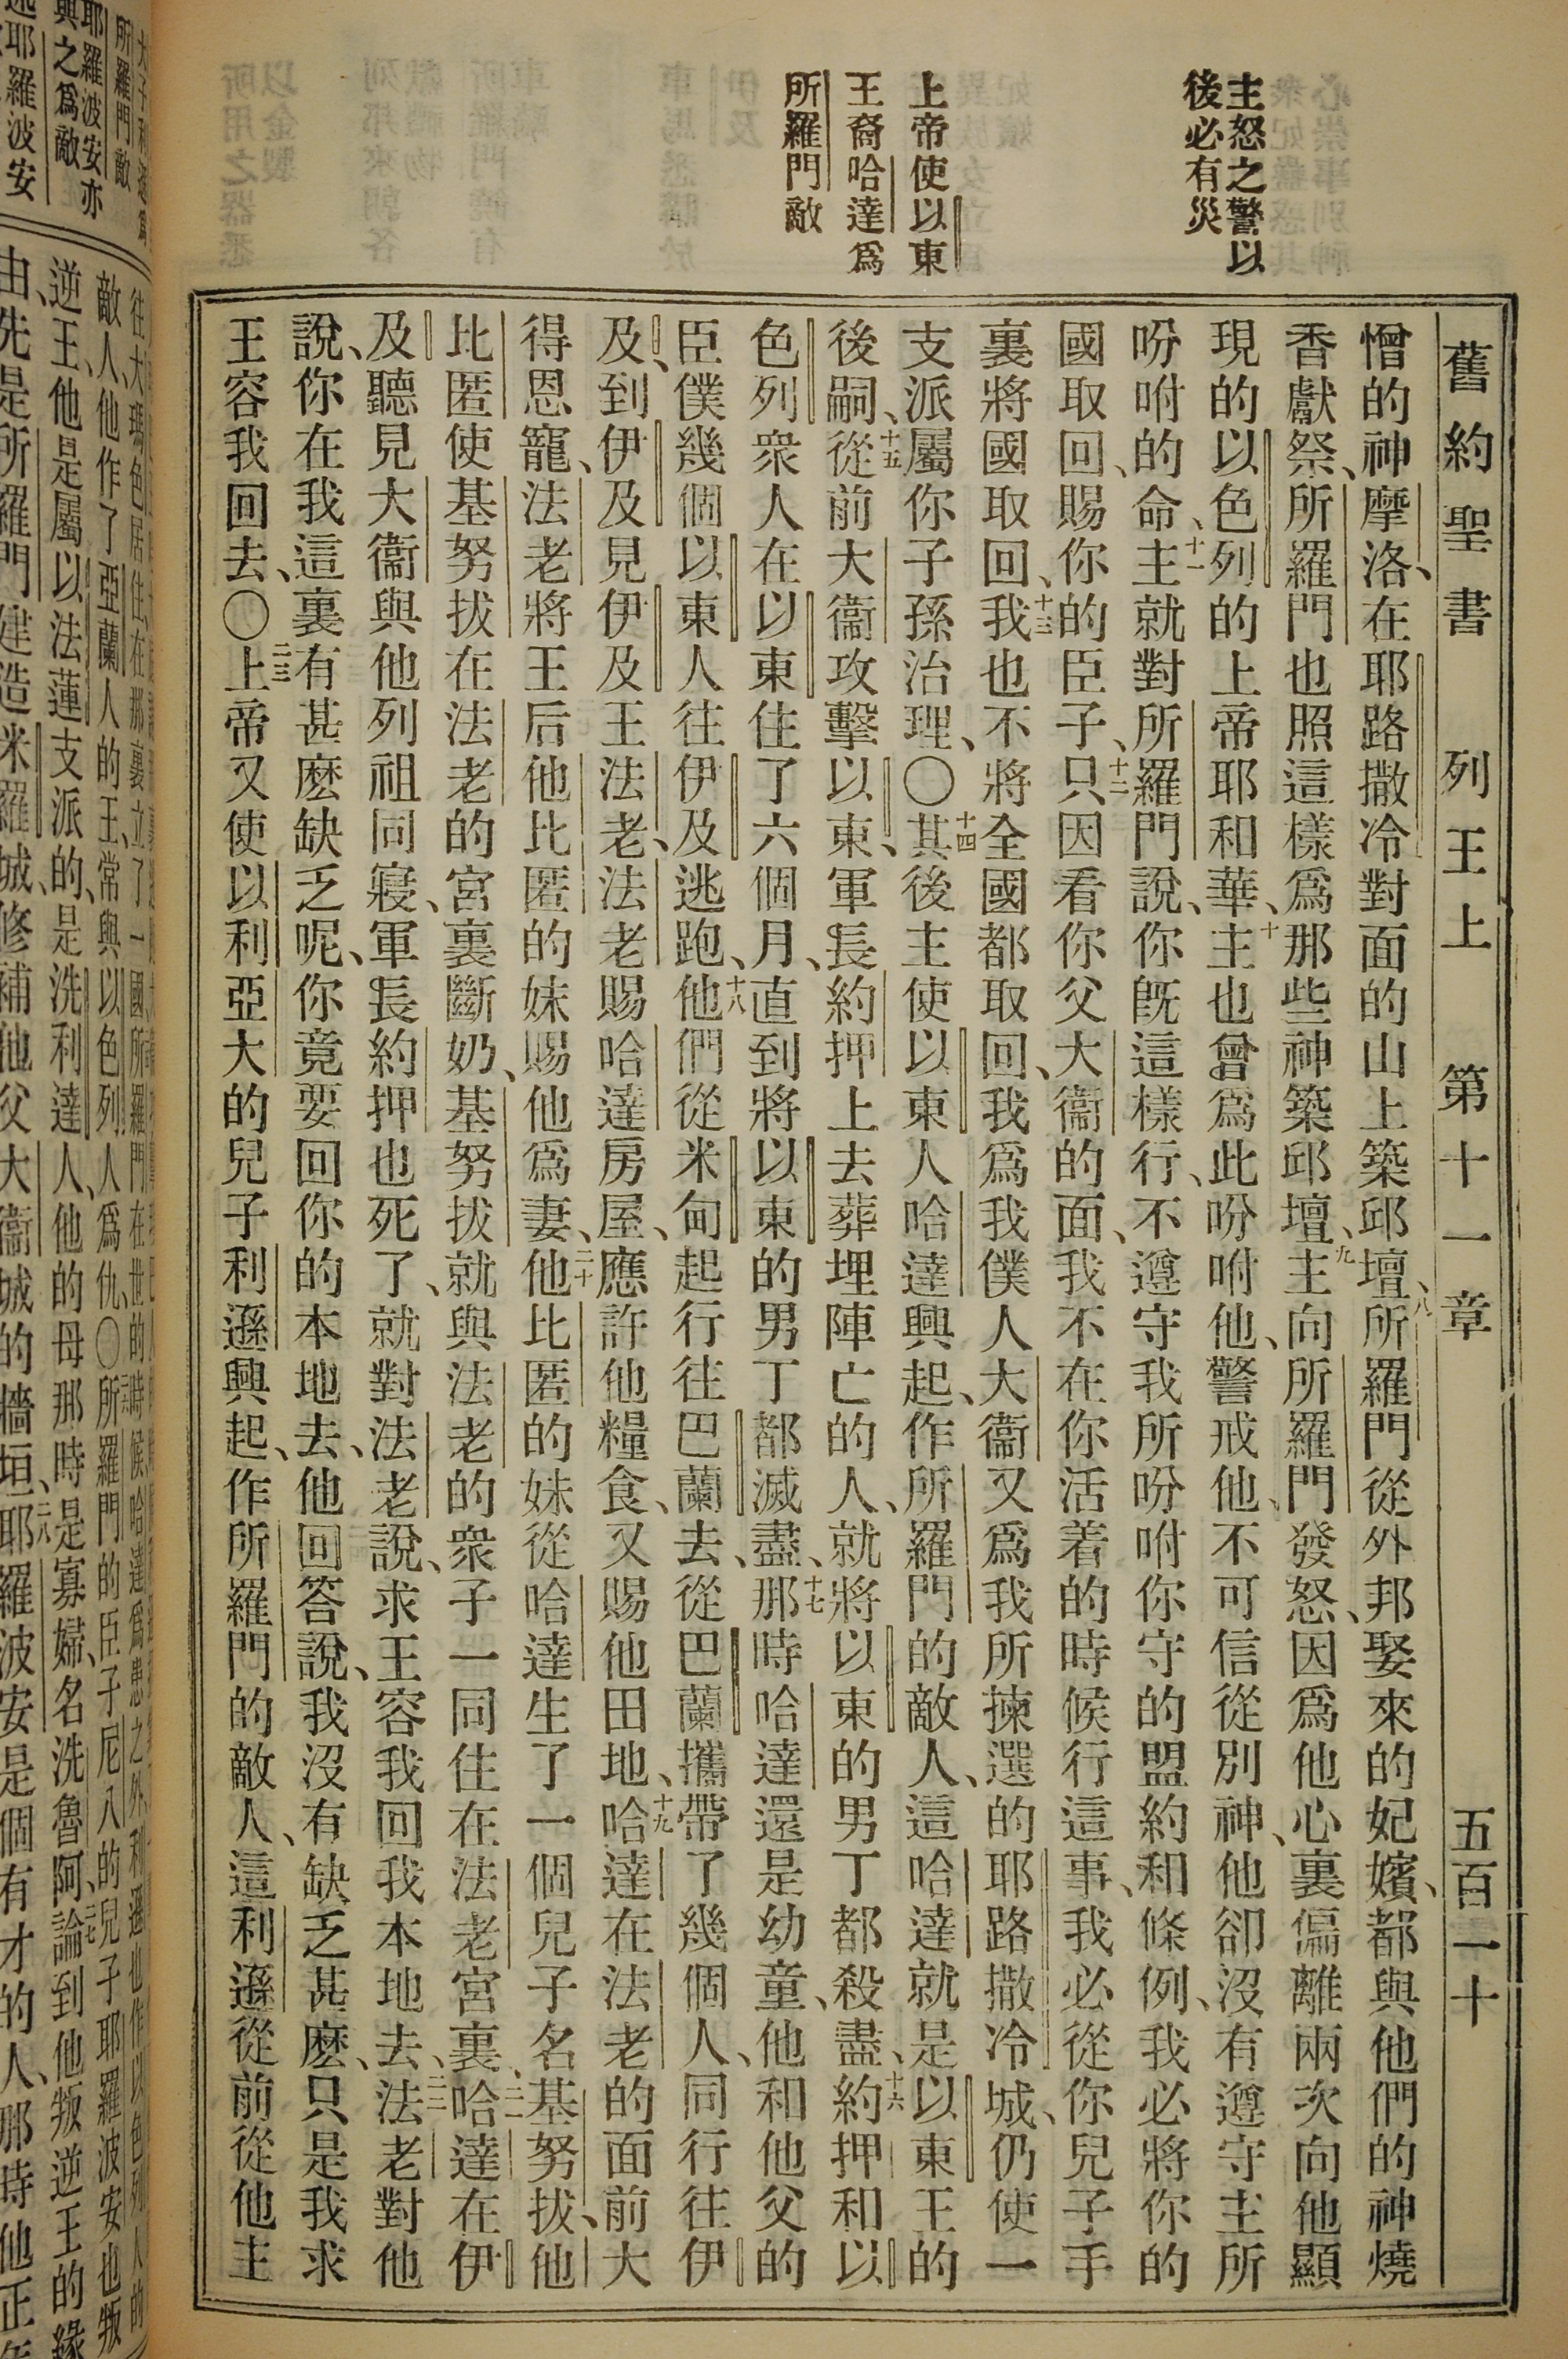 舊約聖書 列王上 第十一章 五百一十
主怒之警以
後必有災
上帝使以東
王裔哈達爲
所羅門敵
憎的神摩洛、在耶路撒冷對面的山上築邱壇、八所羅門從外邦娶來的妃嬪、都與他們的神燒
香獻祭、所羅門也照這樣爲那些神築邱壇、九主向所羅門發怒、因爲他心裏偏離兩次向他顯
現的以色列的上帝耶和華、十主也曾爲此吩咐他、警戒他、不可信從別神、他卻沒有遵守主所
吩咐的命、十一主就對所羅門說、你旣這樣行、不遵守我所吩咐你守的盟約和條例、我必將你的
國取回、賜你的臣子、十二只因看你父大衞的面、我不在你活着的時候行這事、我必從你兒子手
裏將國取回、十三我也不將全國都取回、我爲我僕人大衞又爲我所揀選的耶路撒冷城、仍使一
支派屬你子孫治理、〇十四其後主使以東人哈達興起、作所羅門的敵人、這哈達就是以東王的
後嗣、十五從前大衞攻擊以東、軍長約押上去葬埋陣亡的人、就將以東的男丁都殺盡、十六約押和以
色列衆人在以東住了六個月、直到將以東的男丁都滅盡、十七那時哈達還是幼童、他和他父的
臣僕幾個以東人往伊及逃跑、十八他們從米甸起行往巴蘭去、從巴蘭攜帶了幾個人、同行往伊
及、到伊及見伊及王法老、法老賜哈達房屋、應許他糧食、又賜他田地、十九哈達在法老的面前大
得恩寵、法老將王后他比匿的妹賜他爲妻、二十他比匿的妹從哈達生了一個兒子名基努拔、他
比匿使基努拔在法老的宮裏斷奶、基努拔就與法老的衆子一同住在法老宮裏、二一哈達在伊
及聽見大衞與他列祖同寢、軍長約押也死了、就對法老說、求王容我回我本地去、二二法老對他
說、你在我這裏有甚麽缺乏呢、你竟要回你的本地去、他回答說、我沒有缺乏甚麽、只是我求
王容我回去、〇二三上帝又使以利亞大的兒子利遜興起、作所羅門的敵人、這利遜從前從他主
所羅門敵
耶羅波安亦
與之爲敵
敵人、他作了亞蘭人的王、常與以色列人爲仇、〇所羅門的臣子尼八的兒子耶羅波安也叛
逆王、他是屬以法蓮支派的、是洗利達人、他的母那時是寡婦、名洗魯阿、二七論到他叛逆王的緣
由先是所羅門建造米羅城、修補他父大衞城的牆垣、二八耶羅波安是個有才的人、那時他正